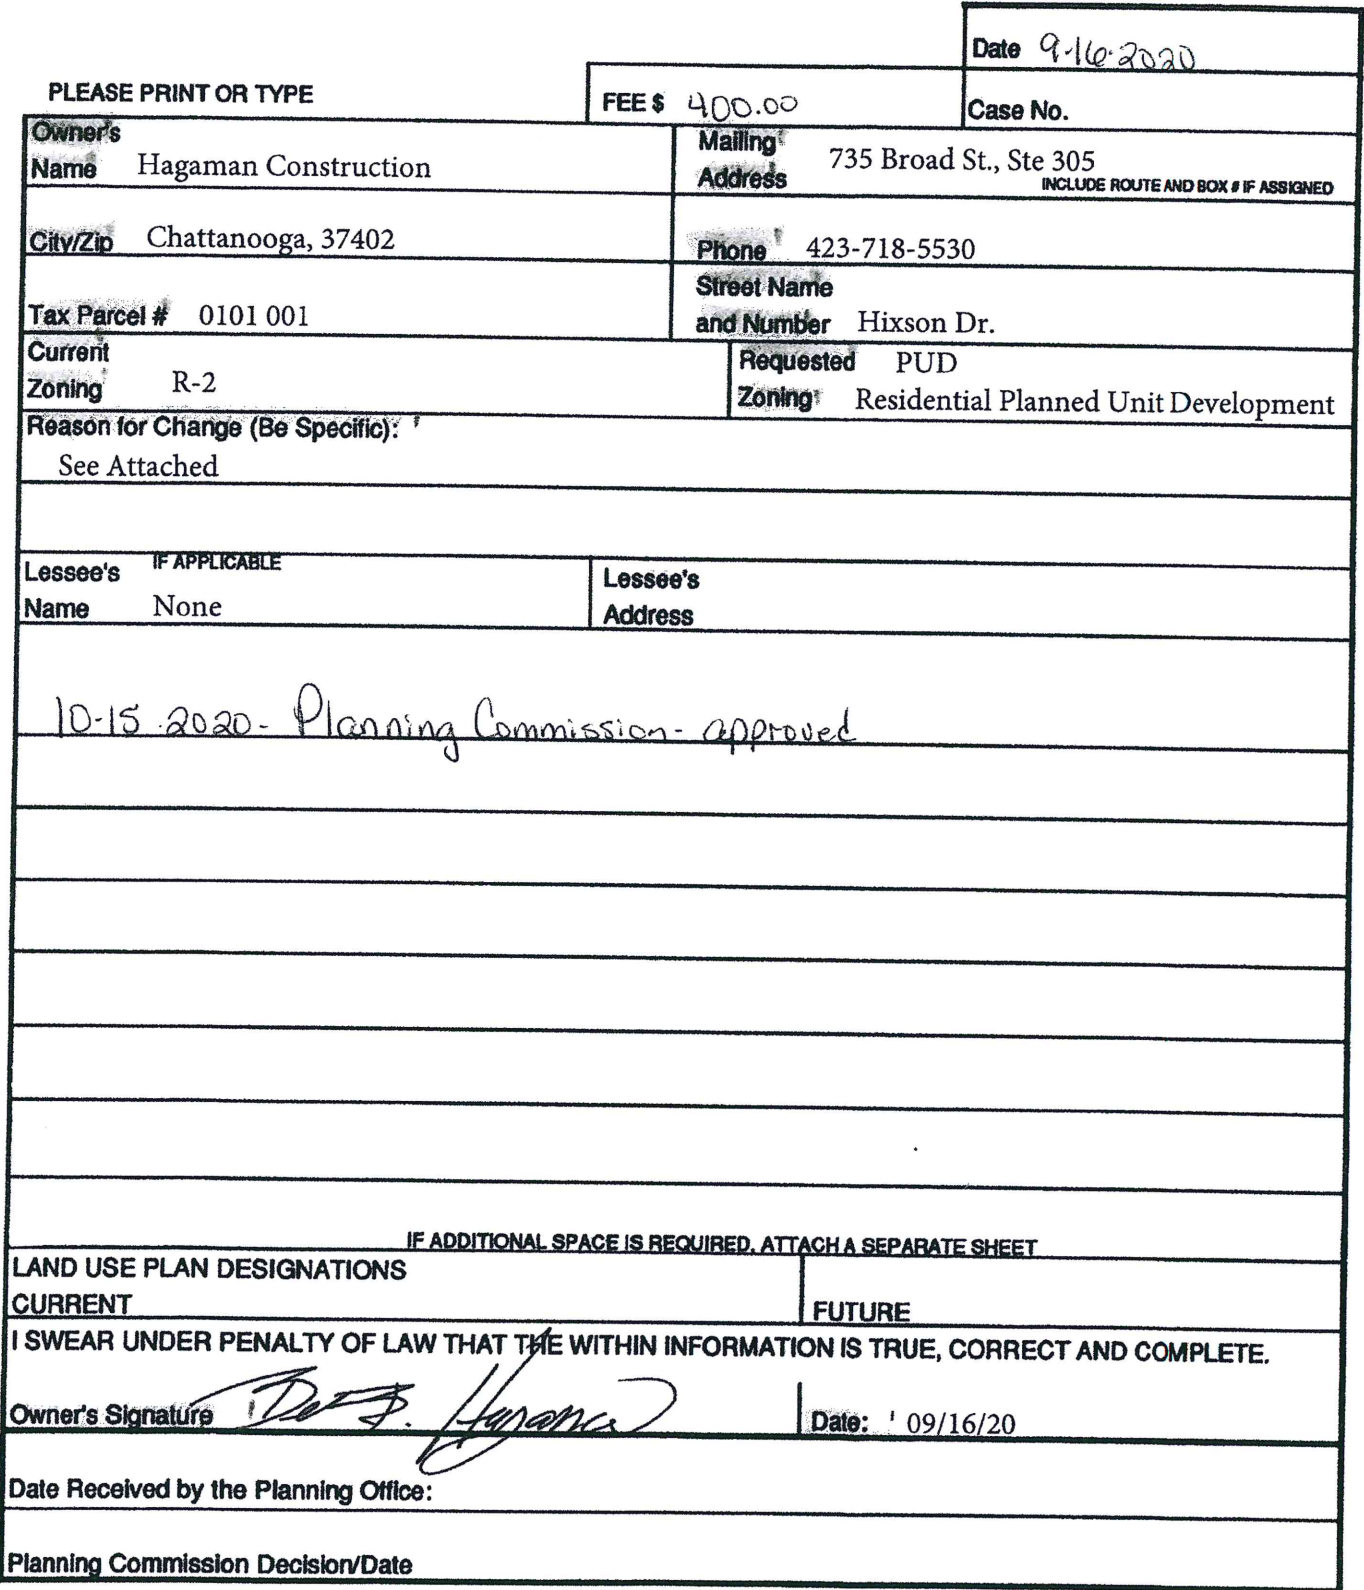 Date 9-16-2020
PLEASE PRINT OR TYPE
FEE $ 400.00
Case No.
Owner's
Name Hagaman Construction
Mailing
Address 735 Broad St., Ste 305
INCLUDE ROUTE AND BOX # IF ASSIGNED
City/Zip Chattanooga, 37402
Phone 423-718-5530
Tax Parcel # 0101 001
Street Name
and Number Hixson Dr.
Current
Zoning R-2
Requested PUD
Zoning Residential Planned Unit Development
Reason for Change (Be Specific):
See Attached
Lessee's IF APPLICABLE
Name None
Lessee's
Address
10-15-2020- Planning Commission- approved
IF ADDITIONAL SPACE IS REQUIRED, ATTACH A SEPARATE SHEET
LAND USE PLAN DESIGNATIONS
CURRENT
FUTURE
I SWEAR UNDER PENALTY OF LAW THAT THE WITHIN INFORMATION IS TRUE, CORRECT AND COMPLETE.
Owner's Signature
Date: 09/16/20
Date Received by the Planning Office:
Planning Commission Decision/Date